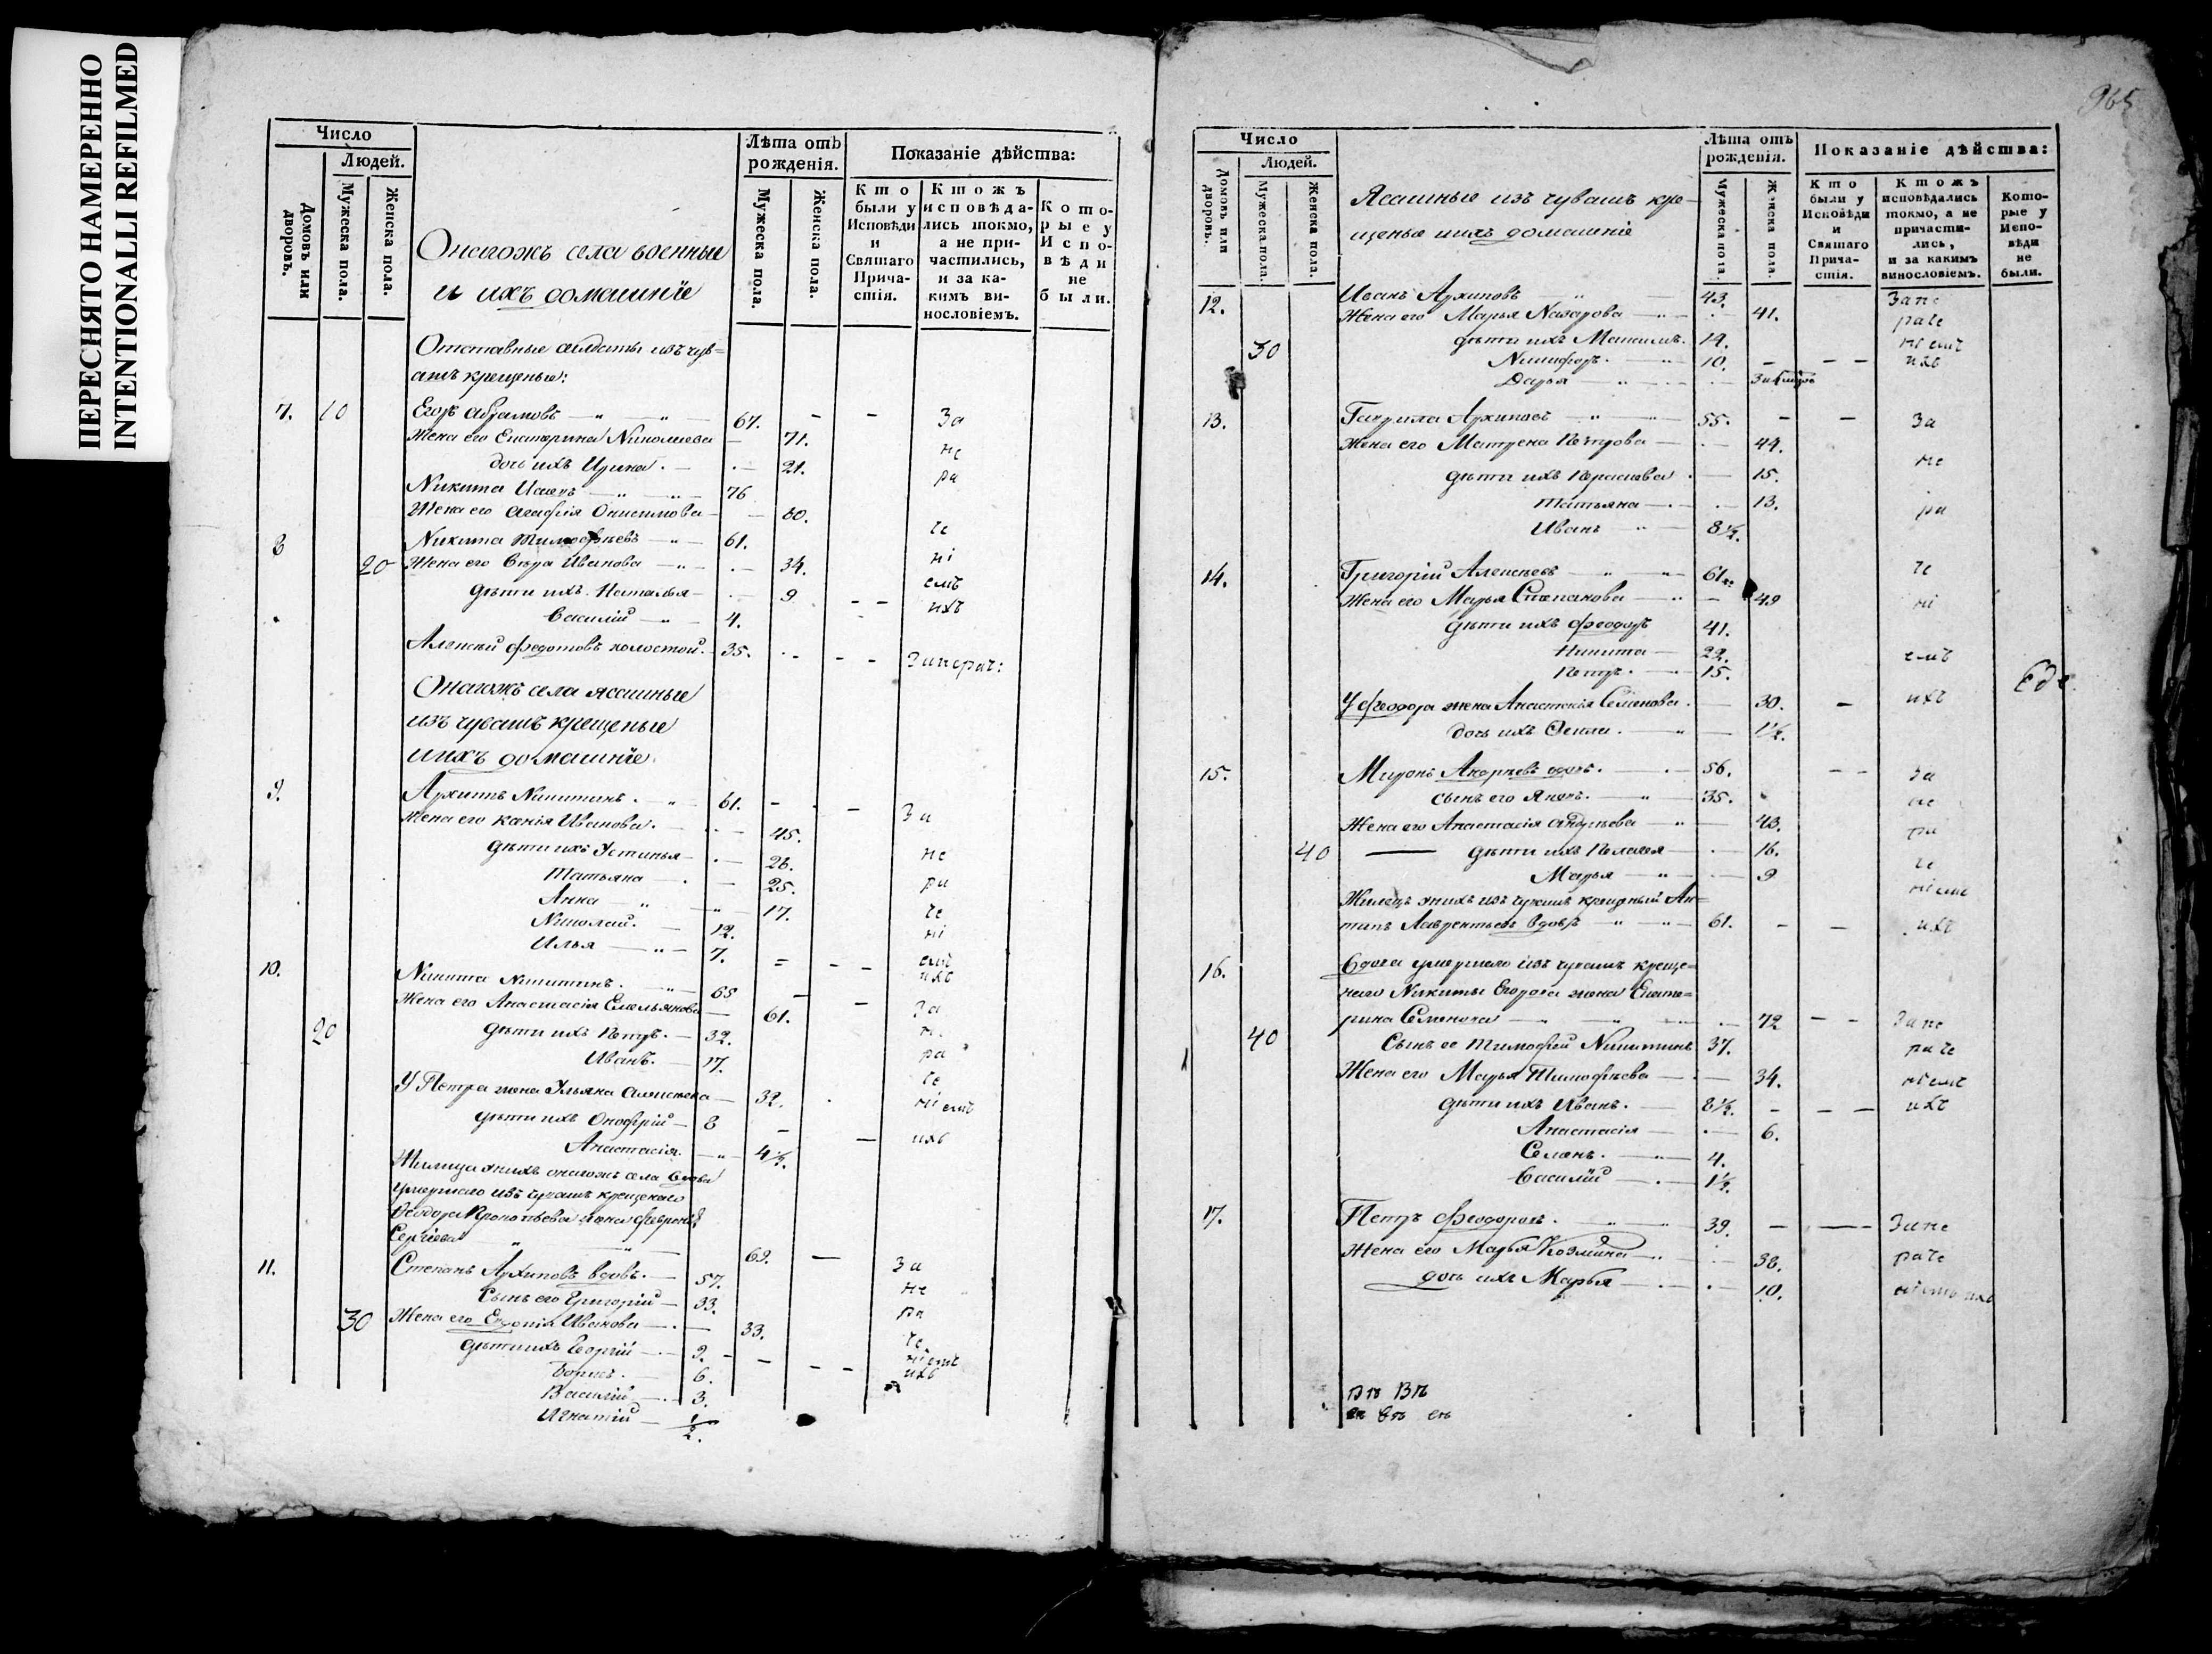 ПЕРЕСНЯТО НАМЕРЕННО
INTENTIONALLI REFILMED
Число
Людей.
Домовъ или дворовъ.
Мужеска пола.
Женска пола.
Онагожъ села военные
и ихъ домашнїе
Лѣта отъ рожденія.
Мужеска пола.
Женска пола.
Показаніе дѣйства:
Кто были у Исповѣди и Святаго Причастія.
Ктожъ исповѣдались токмо, а не причастились, и за какимъ винословіемъ.
Которые у Исповѣди не были.
Отставные салдаты изъ чув=
ашъ крещеные:
7. 10 Егоръ Абрамовъ 67. За
Жена его Екатерина Николаева 71. не
дочь ихъ Ирина. 21. ра
Никита Исаевъ 76
Жена его Агафія Онисимова 60. че
8 Никита Тимофѣевъ 61. ні
20 Жена его Вѣра Иванова 34. емъ
дѣти ихъ Наталья 9 ихъ
Василій 4.
Алексѣй Федотовъ холостой. 35. Занерач:
Онагожъ села ясашные
изъ чувашъ крещеные
и ихъ домашнїе
9. Архипъ Никитинъ. 61. За
Жена его Ксенія Иванова. 45.
дѣти ихъ Устинья 26. не
Татьяна 25. ра
Анна 17. че
Николай. 12. ні
Илья 7. емъ
10. Никита Никитинъ. 65 ихъ
Жена его Анастасія Емельянова 61. За
20 дѣти ихъ Петръ. 32. не
Иванъ. 17. ра
У Петра жена Ульяна Алексѣева 32. че
дѣти ихъ Онофрій 8 ніемъ
Анастасія. 4½. ихъ
Жилица у нихъ онагожъ села вдова
умершаго изъ чувашъ крещенаго
Ѳеодора Прокопьева жена Февронія
Сергіева 69.
11. Степанъ Архиповъ вдовъ. 57. За
Сынъ его Григорій 33. не
30 Жена его Евдокія Иванова 33. ра
дѣти ихъ Георгій 9. че
Борисъ. 6. ніемъ
Василій 3. ихъ
Игнатій ½.
965
Число
Людей.
Домовъ или дворовъ.
Мужеска пола.
Женска пола.
Ясашные изъ чувашъ кре=
щеные и ихъ домашнїе
Лѣта отъ рожденія.
Мужеска пола.
Женска пола.
Показаніе дѣйства:
Кто были у Исповѣди и Святаго Причастія.
Ктожъ исповѣдались токмо, а не причастились, и за какимъ винословіемъ.
Которые у Исповѣди не были.
12. Иванъ Архиповъ 43. Зане
Жена его Марья Назарова 41. раче
30 дѣти ихъ Максимъ. 14. ніемъ
Никифоръ. 10. ихъ
Дарья
13. Гаврила Архиповъ 55. За
Жена его Матрена Петрова 44.
дѣти ихъ Парасковья 15. не
Татьяна 13.
Иванъ 8½. ра
14. Григорій Алексѣевъ 61. че
Жена его Марья Степанова 49 ні
дѣти ихъ Феодоръ 41.
Никита 22. емъ
Петръ. 15.
У Феодора жена Анастасія Семенова. 30. ихъ
дочь ихъ 1½.
15. Миронъ Андреевъ вдовъ. 56. За
сынъ его Яковъ. 35. не
Жена его Анастасія Андреева 43. ра
40 дѣти ихъ Пелагея 16. че
Марья 9 ніемъ
Жилецъ у нихъ изъ чувашъ крещеный Ан=
типъ Лаврентьевъ вдовъ 61. ихъ
16. Вдова умершаго изъ чувашъ креще=
наго Никиты Егорова жена Екате=
рина Семенова 72 Зане
40 Сынъ ее Тимофей Никитинъ 37. раче
Жена его Марья Тимофѣева 34. ніемъ
дѣти ихъ Иванъ. 8½. ихъ
Анастасія 6.
Семенъ. 4.
Василій 1½.
17. Петръ Феодоровъ. 39. Зане
Жена его Марья Козмина 38. раче
дочь ихъ Марья 10. ніемъ ихъ